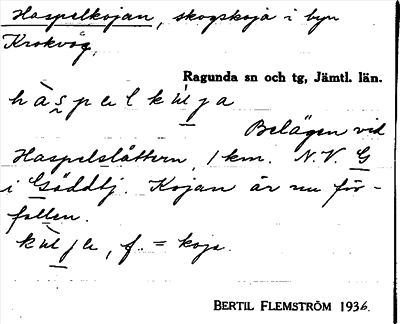 Haspelkojan, skogskoja i byn
Krokvåg,
Ragunda sn och tg, Jämtl. län.
hàspelkùja
Belägen vid
Haspelslåttern, 1 km. N.V. G
i Gäddtj. Kojan är nu för-
fallen.
kùja, f. = koja.
BERTIL FLEMSTRÖM 1936.